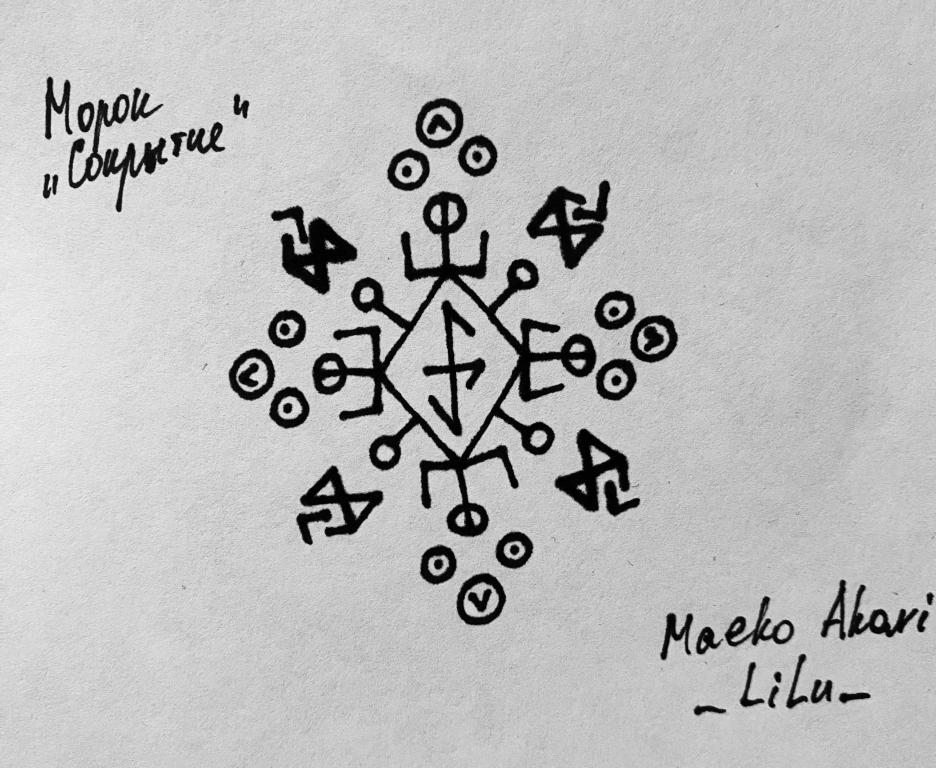 Морок
"Сокрытие"
Maeko Akari
_LiLu_